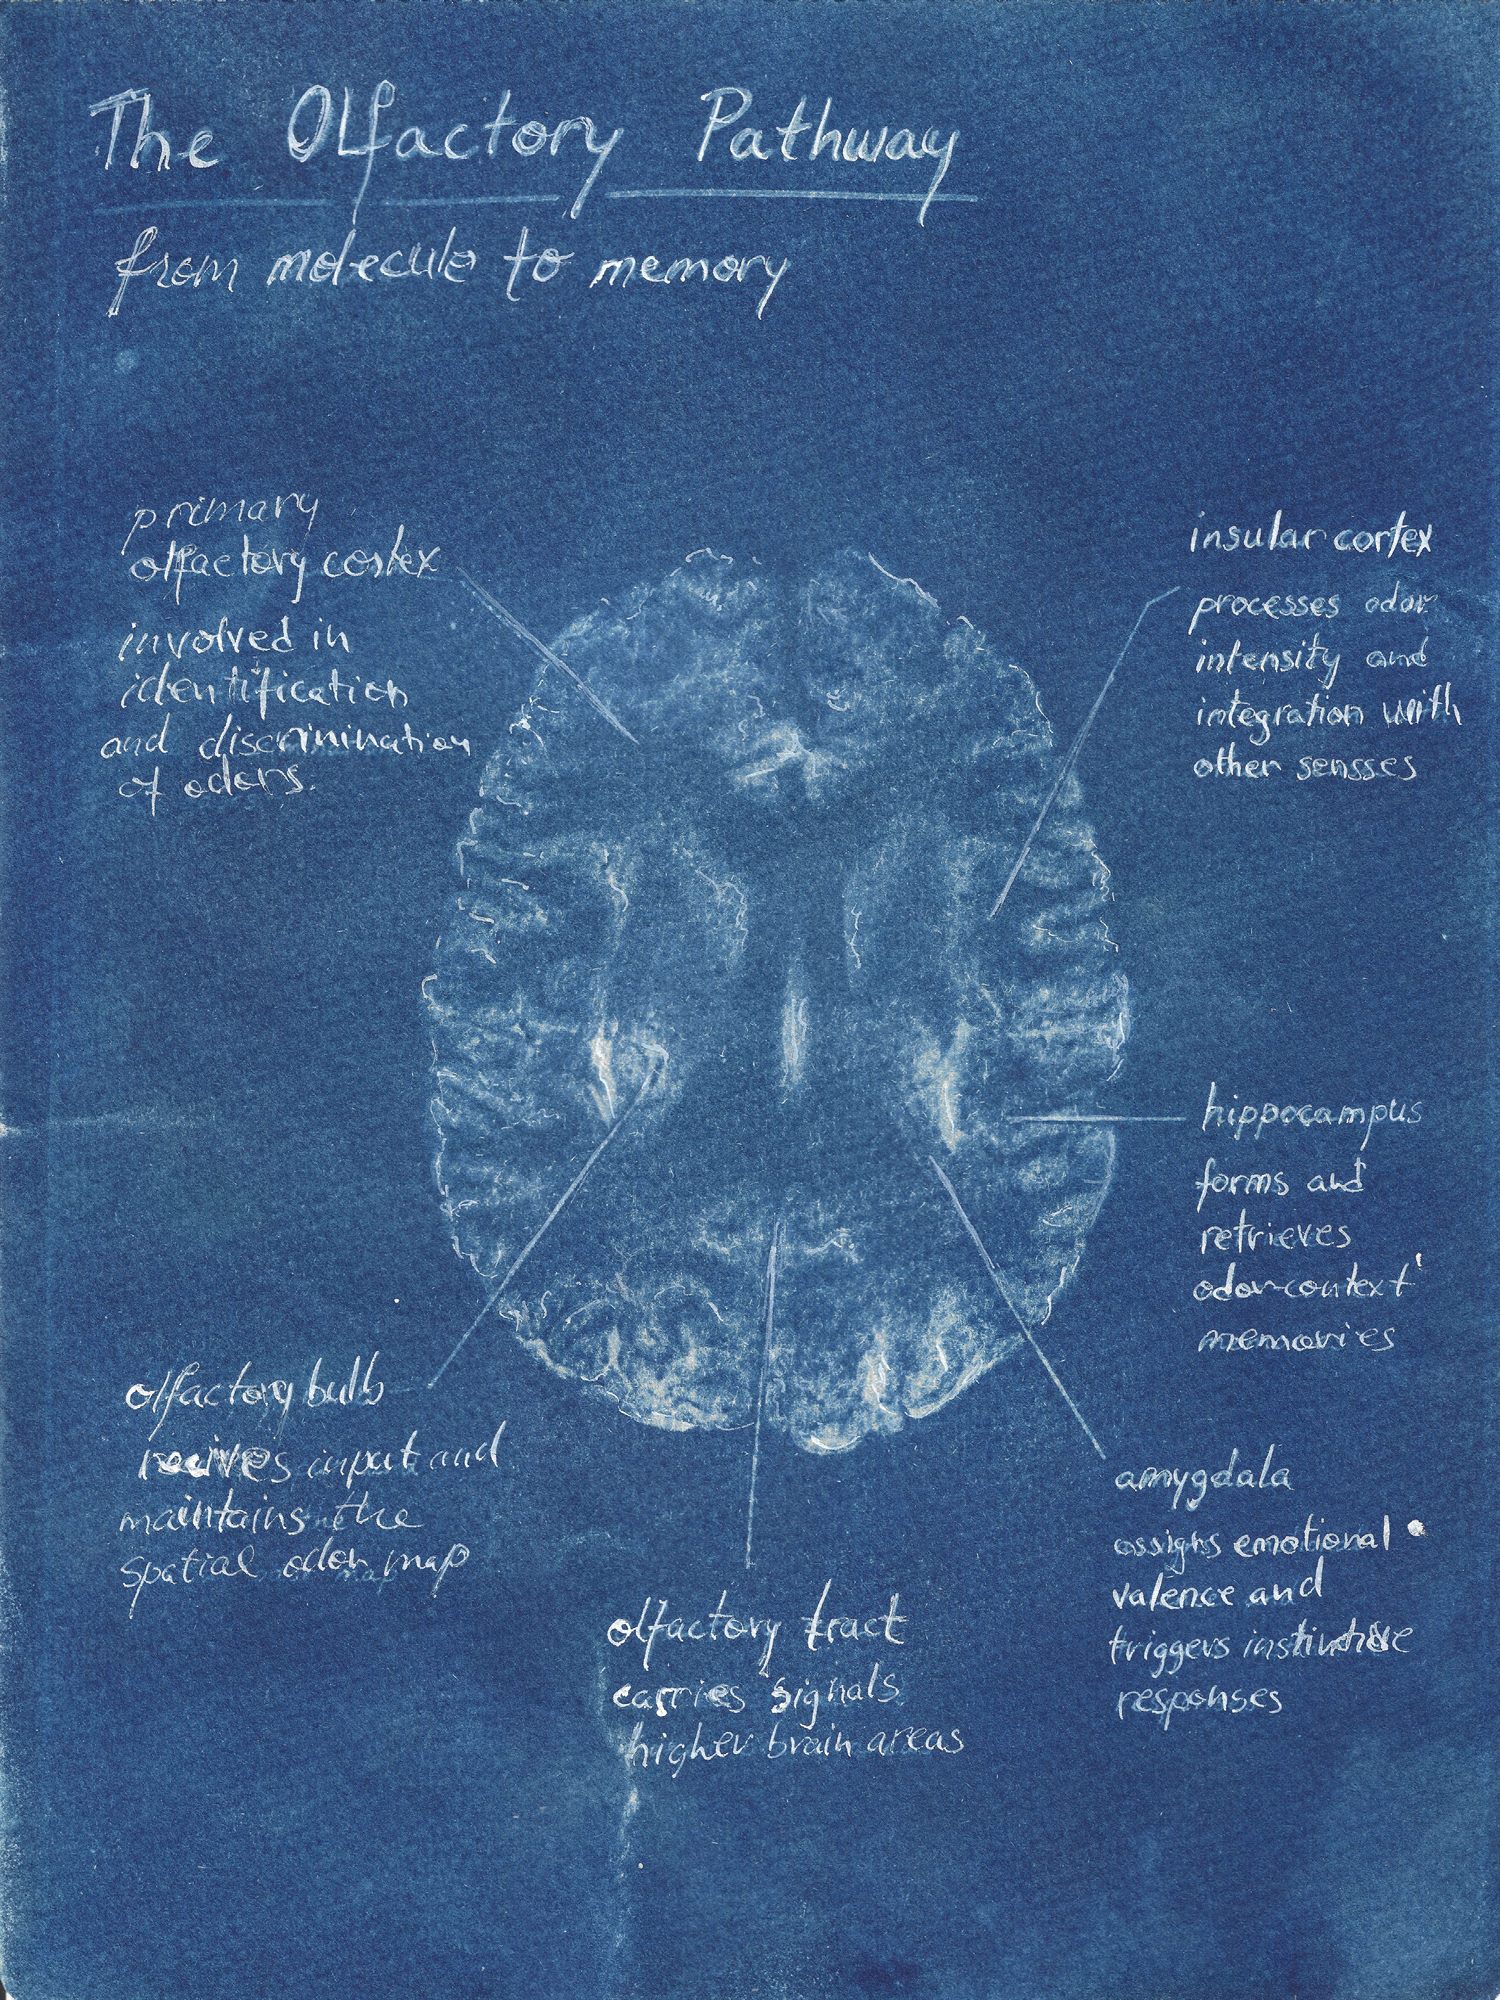 The Olfactory Pathway
from molecule to memory
primary
olfactory cortex
involved in
identification
and discrimination
of odors.
insular cortex
processes odor
intensity and
integration with
other sensses
hippocampus
forms and
retrieves
odor-context
memories
olfactory bulb
recives input and
maintains the
spatial odor map
amygdala
assigns emotional
valence and
triggers instinctive
responses
olfactory tract
carries signals
higher brain areas